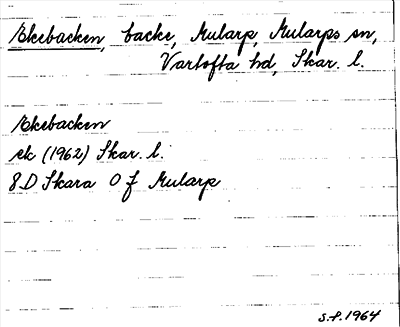 Ekebacken, backe, Mularp, Mularps sn,
Vartofta hd, Skar. l.
Ekebacken
ek (1962) Skar. l.
8D Skara 0 f Mularp
S.F. 1964